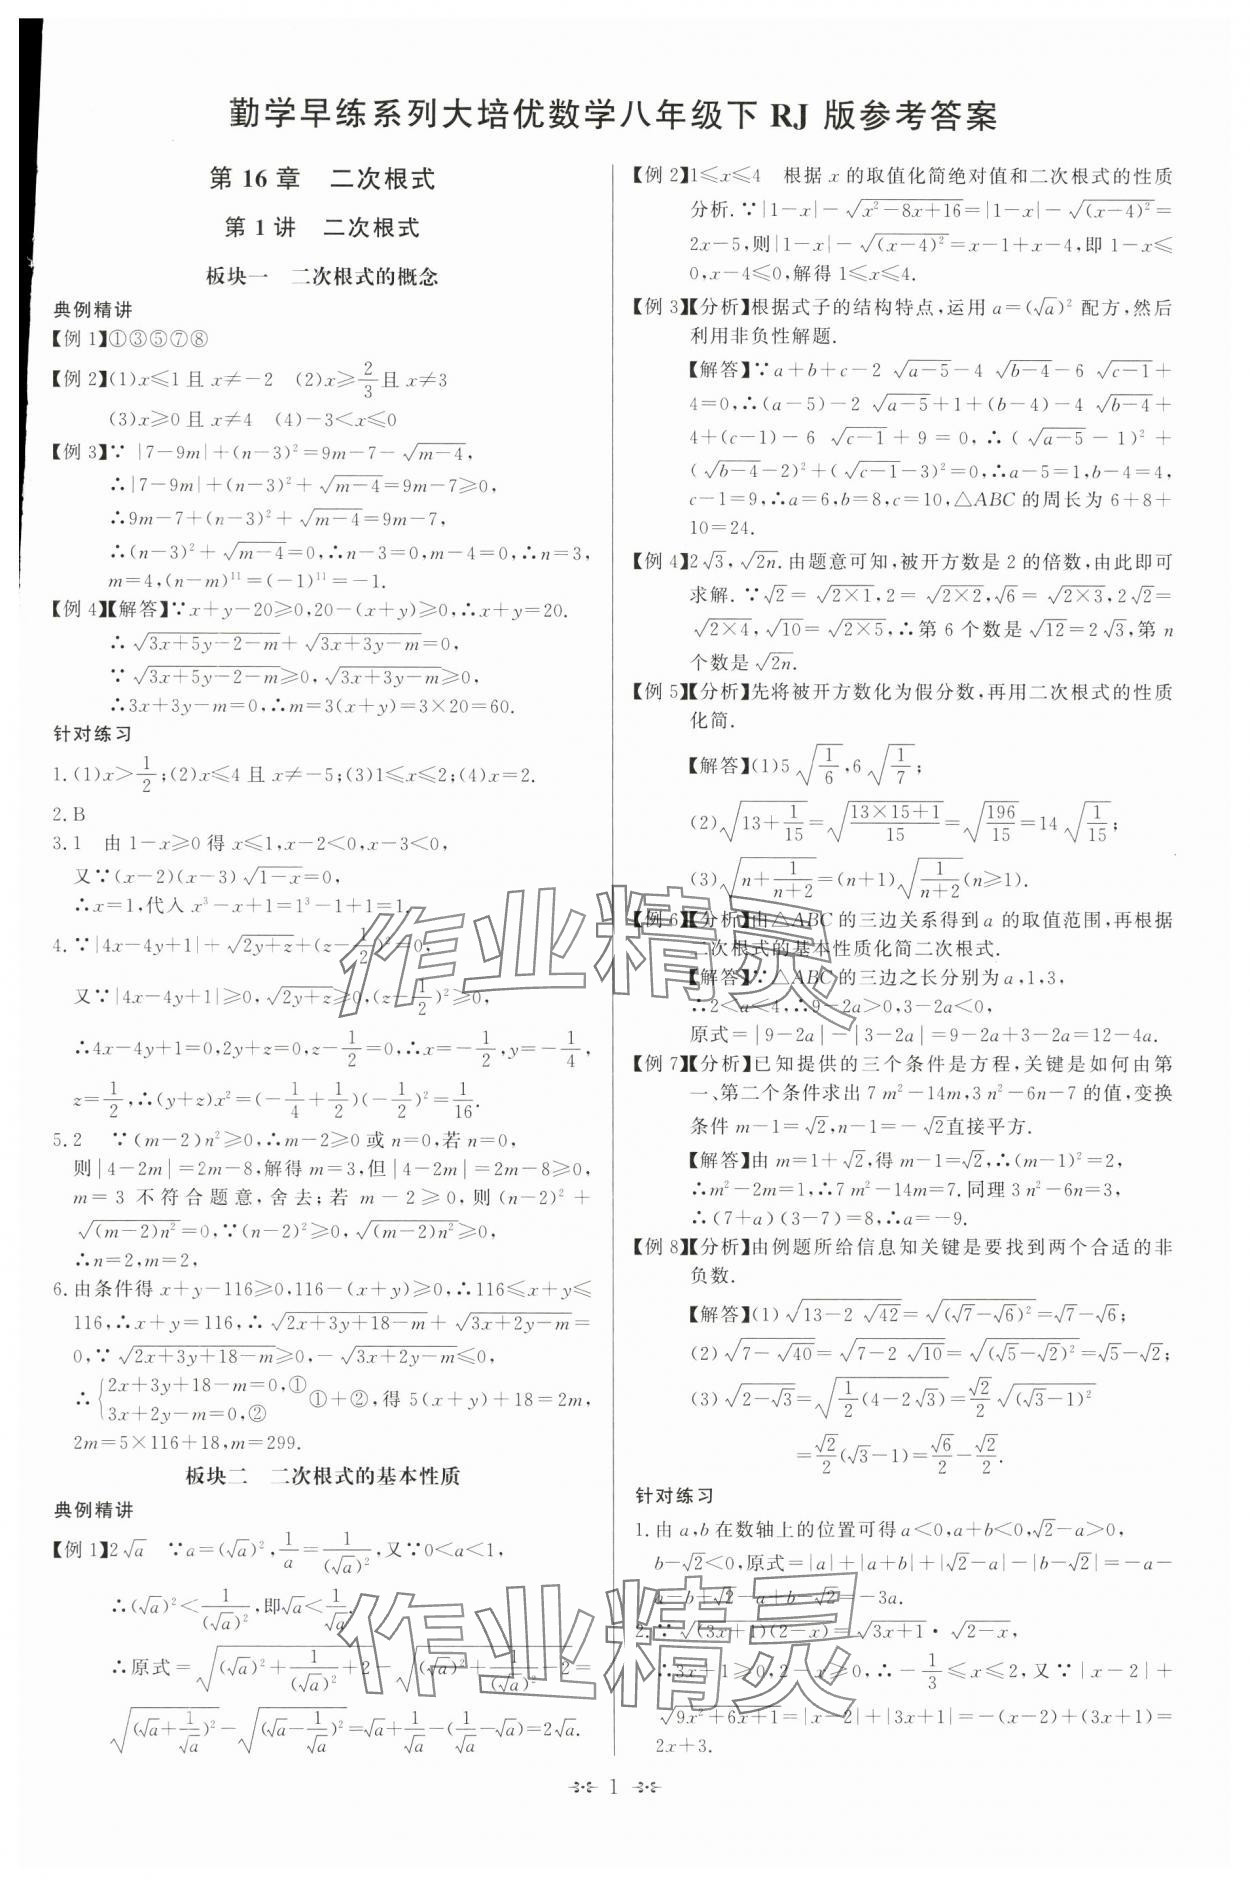 勤学早练系列大培优数学八年级下 RJ 版参考答案
第 16 章 二次根式
第 1 讲 二次根式
板块一 二次根式的概念
典例精讲
【例 1】①③⑤⑦⑧
【例 2】(1)x≤1 且 x≠-2 (2)x≥2/3且 x≠3
(3)x≥0 且 x≠4 (4)-3<x≤0
【例 3】∵ |7-9m|+(n-3)²=9m-7-√(m-4),
∴|7-9m|+(n-3)²+√(m-4)=9m-7≥0,
∴9m-7+(n-3)²+√(m-4)=9m-7,
∴(n-3)²+√(m-4)=0,∴n-3=0,m-4=0,∴n=3,
m=4,(n-m)¹¹=(-1)¹¹=-1.
【例 4】【解答】∵x+y-20≥0,20-(x+y)≥0,∴x+y=20.
∴√(3x+5y-2-m)+√(3x+3y-m)=0,
∵√(3x+5y-2-m)≥0,√(3x+3y-m)≥0,
∴3x+3y-m=0,∴m=3(x+y)=3×20=60.
针对练习
1.(1)x>1/2;(2)x≤4 且 x≠-5;(3)1≤x≤2;(4)x=2.
2.B
3.1 由 1-x≥0 得 x≤1,x-2<0,x-3<0,
又∵(x-2)(x-3)√(1-x)=0,
∴x=1,代入 x³-x+1=1³-1+1=1.
4.∵|4x-4y+1|+√(2y+z)+(z-1/2)²=0,
又∵|4x-4y+1|≥0,√(2y+z)≥0,(z-1/2)²≥0,
∴4x-4y+1=0,2y+z=0,z-1/2=0,∴x=-1/2,y=-1/4,
z=1/2,∴(y+z)x²=(-1/4+1/2)(-1/2)²=1/16.
5.2 ∵(m-2)n²≥0,∴m-2≥0 或 n=0,若 n=0,
则|4-2m|=2m-8,解得 m=3,但|4-2m|=2m-8≥0,
m=3 不符合题意,舍去;若 m-2≥0,则(n-2)²+
√((m-2)n²)=0,∵(n-2)²≥0,√((m-2)n²)≥0,
∴n=2,m=2,
6.由条件得 x+y-116≥0,116-(x+y)≥0,∴116≤x+y≤
116,∴x+y=116,∴√(2x+3y+18-m)+√(3x+2y-m)=
0,∵√(2x+3y+18-m)≥0,-√(3x+2y-m)≤0,
∴{2x+3y+18-m=0,① 3x+2y-m=0,② ①+②,得 5(x+y)+18=2m,
2m=5×116+18,m=299.
板块二 二次根式的基本性质
典例精讲
【例 1】2√a ∵a=(√a)²,1/a=1/(√a)²,又∵0<a<1,
∴(√a)²<1/(√a)²,即√a<1/√a.
∴原式=√((√a)²+1/(√a)²+2)-√((√a)²+1/(√a)²-2)=
√((√a+1/√a)²)-√((√a-1/√a)²)=√a+1/√a-(1/√a-√a)=2√a.
【例 2】1≤x≤4 根据 x 的取值化简绝对值和二次根式的性质
分析.∵|1-x|-√(x²-8x+16)=|1-x|-√((x-4)²)=
2x-5,则|1-x|-√((x-4)²)=x-1+x-4,即 1-x≤
0,x-4≤0,解得 1≤x≤4.
【例 3】【分析】根据式子的结构特点,运用 a=(√a)² 配方,然后
利用非负性解题.
【解答】∵a+b+c-2√(a-5)-4√(b-4)-6√(c-1)+
4=0,∴(a-5)-2√(a-5)+1+(b-4)-4√(b-4)+
4+(c-1)-6√(c-1)+9=0,∴(√(a-5)-1)²+
(√(b-4)-2)²+(√(c-1)-3)²=0,∴a-5=1,b-4=4,
c-1=9,∴a=6,b=8,c=10,△ABC 的周长为 6+8+
10=24.
【例 4】2√3,√(2n).由题意可知,被开方数是 2 的倍数,由此即可
求解.∵√2=√(2×1),2=√(2×2),√6=√(2×3),2√2=
√(2×4),√10=√(2×5),∴第 6 个数是√12=2√3,第 n
个数是√(2n).
【例 5】【分析】先将被开方数化为假分数,再用二次根式的性质
化简.
【解答】(1)5√(1/6),6√(1/7);
(2)√(13+1/15)=√((13×15+1)/15)=√(196/15)=14√(1/15);
(3)√(n+1/(n+2))=(n+1)√(1/(n+2))(n≥1).
【例 6】【分析】由△ABC 的三边关系得到 a 的取值范围,再根据
二次根式的基本性质化简二次根式.
【解答】∵△ABC的三边之长分别为 a,1,3,
∴2<a<4,∴9-2a>0,3-2a<0,
原式=|9-2a|-|3-2a|=9-2a+3-2a=12-4a.
【例 7】【分析】已知提供的三个条件是方程,关键是如何由第
一、第二个条件求出 7 m²-14m,3 n²-6n-7 的值,变换
条件 m-1=√2,n-1=-√2直接平方.
【解答】由 m=1+√2,得 m-1=√2,∴(m-1)²=2,
∴m²-2m=1,∴7 m²-14m=7.同理 3 n²-6n=3,
∴(7+a)(3-7)=8,∴a=-9.
【例 8】【分析】由例题所给信息知关键是要找到两个合适的非
负数.
【解答】(1)√(13-2√42)=√((√7-√6)²)=√7-√6;
(2)√(7-√40)=√(7-2√10)=√((√5-√2)²)=√5-√2;
(3)√(2-√3)=√(1/2(4-2√3))=√2/2 √((√3-1)²
=√2/2(√3-1)=√6/2-√2/2.
针对练习
1.由 a,b 在数轴上的位置可得 a<0,a+b<0,√2-a>0,
b-√2<0,原式=|a|+|a+b|+|√2-a|-|b-√2|=-a-
a-b+√2-a+b-√2=-3a.
2.∵√((3x+1)(2-x))=√(3x+1)·√(2-x),
∴3x+1≥0,2-x≥0,∴-1/3≤x≤2,又∵|x-2|+
√(9x²+6x+1)=|x-2|+|3x+1|=-(x-2)+(3x+1)=
2x+3.
1
作业精灵
作业精灵